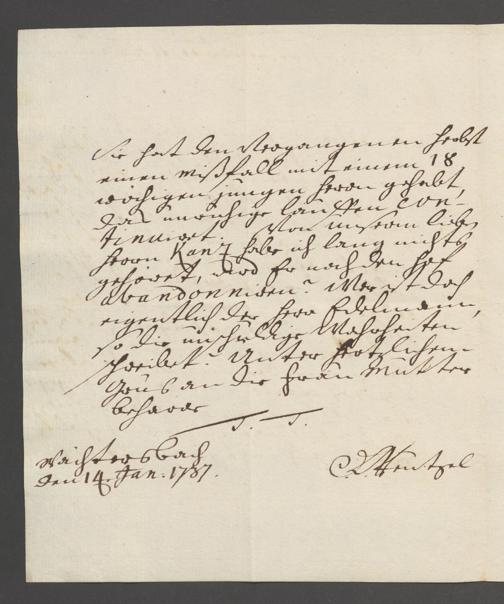 Sie hat den vergangenen Herbst
einen Mißfall mit einem 18
wöchigen jungen Herrn gehabt,
das unruhige con-
tinuiret. Von unserm lieben
Herrn Kanz habe ich lang nichts
gehöret, wird Er noch den Hof
abandonniren? Wer ist doch
eigentlich der Herr Edelmann,
so die unschuldige Wahrheiten
schreibet. Unter herzlichem
Gruß an die Frau Mutter
beharre
J. J.
Wächtersbach
den 14. Jan. 1737.